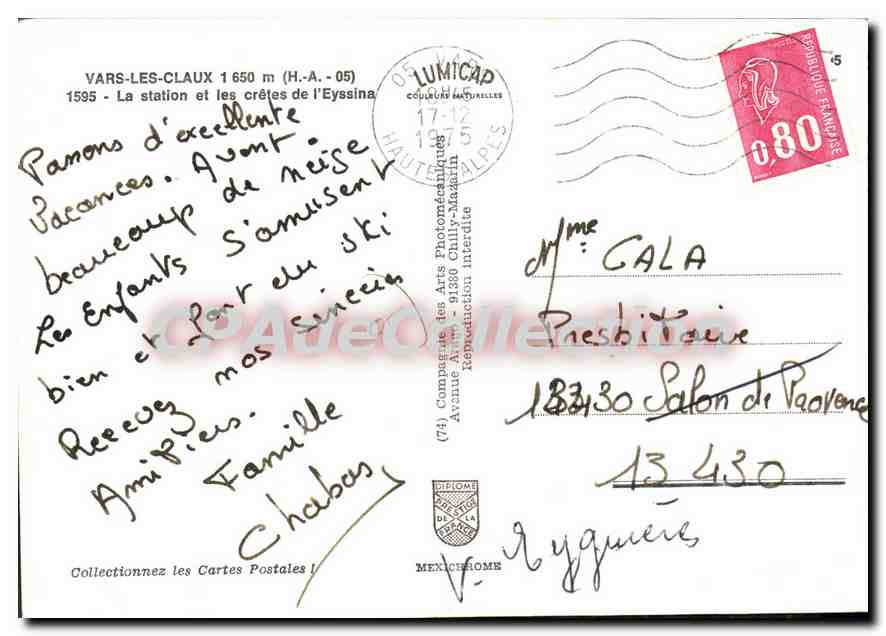 VARS-LES-CLAUX 1 650 m (H.-A. - 05)
1595 - La station et les crêtes de l'Eyssina
Passons d'excellente
Vacances. Avont
beaucoup de neige
Les Enfants s'amusent
bien et font du ski
Recevez nos sincères
Amitiers.
Famille
Chabas
Collectionnez les Cartes Postales !
LUMICAP
COULEURS NATURELLES
05 VARS
18H45
17-12
1975
HAUTES ALPES
(74) Compagnie des Arts Photomécaniques
Avenue Arago - 91380 Chilly-Mazarin
Reproduction interdite
DIPLOME
PRESTIGE
DE LA
FRANCE
MEXICHROME
REPUBLIQUE FRANÇAISE
0,80
Mme: CALA
Presbitaire
13430 Salon de Provence
13 430
V. Eyguières
CPAdeCollection